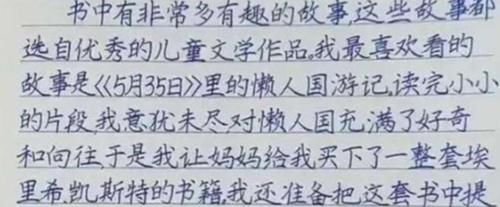 书中有非常多有趣的故事,这些故事都
选自优秀的儿童文学作品,我最喜欢看的
故事是《5月35日》里的懒人国游记,读完小小
的片段,我意犹未尽对懒人国充满了好奇
和向往,于是我让妈妈给我买下了一整套埃
里希.凯斯特的书籍,我还准备把这套书中提